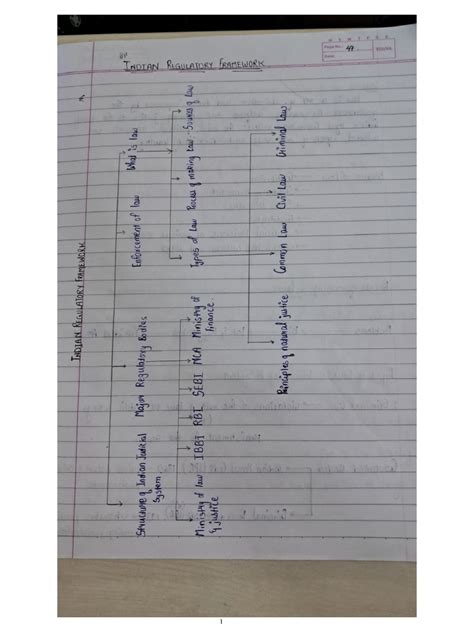 INDIAN REGULATORY FRAMEWORK
49
INDIAN REGULATORY FRAMEWORK
What is law
Enforcement of law
Major Regulatory Bodies
Structure of Indian Judicial
System
Sources of Law
Process of making Law
Types of Law
Ministry of
finance.
MCA
SEBI
RBI
IBBI
Ministry of law
& justice
Criminal Law
Civil Law
Common Law
Principles of natural justice
1